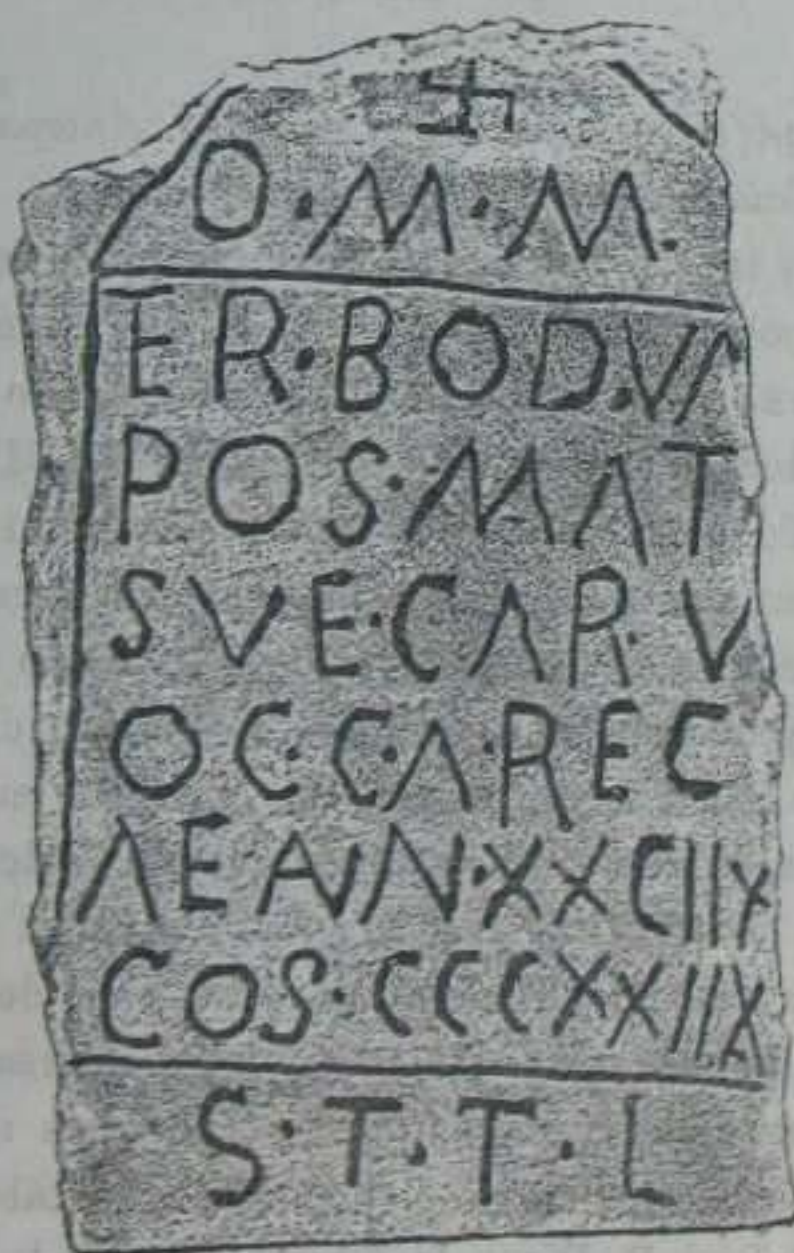 O·M·M·
ER·BOD·VΛ
POS·MΛT
SVE·CΛR·V
OC·C·Λ·REC
ΛE AN·XXCIIX
COS·CCCXXIIX
S·T·T·L